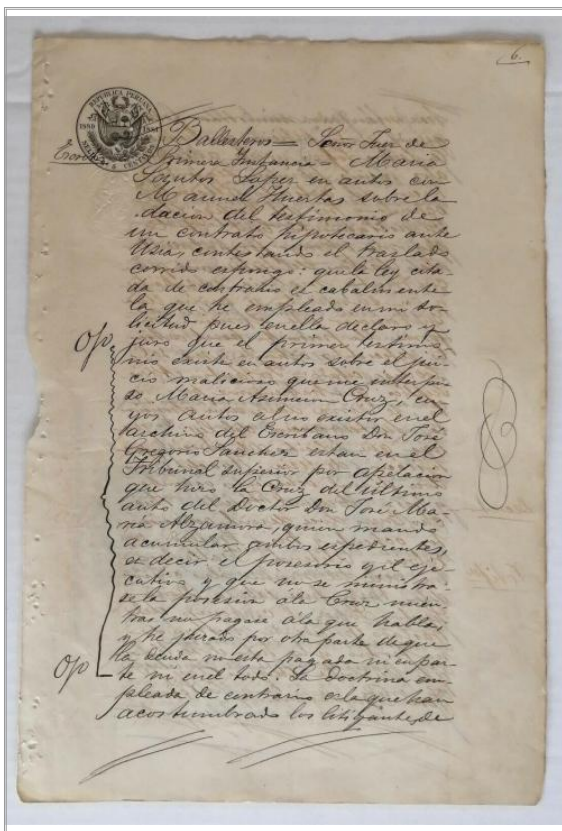 6.
REPUBLICA PERUANA
1880 1881
Escrito
Ballesteros = Señor Juez de
Primera Instancia = Maria
Santos Lopez en autos con
Manuel Huertas sobre la
dacion del testimonio de
un contrato hipotecario ante
Usia, contestando el traslado
corrido espongo: que la ley cita-
da de contrario es cabalmente
la que he empleado en mi so-
licitud pues en ella declaro y
juro que el primer testimo
nio existe en autos sobre el jui-
cio malicioso que me interpu-
so Maria Asuncion Cruz, cu-
yos autos al no existir en el
archivo del Escribano Don José
Gregorio Sanchez estan en el
Tribunal Superior por apelacion
que hizo la Cruz del último
auto del Doctor Don José Ma-
ria Alzamora, quien mandó
acumular ambos espedientes,
es decir el posesorio y el eje-
cutivo y que no se ministra-
se la posesion á la Cruz mien-
tras no pagase á la que habla,
y he jurado por otra parte de que
la deuda no esta pagada ni en par-
te ni en el todo. La doctrina em-
pleada de contrario es la que han
acostumbrado los litigantes, de